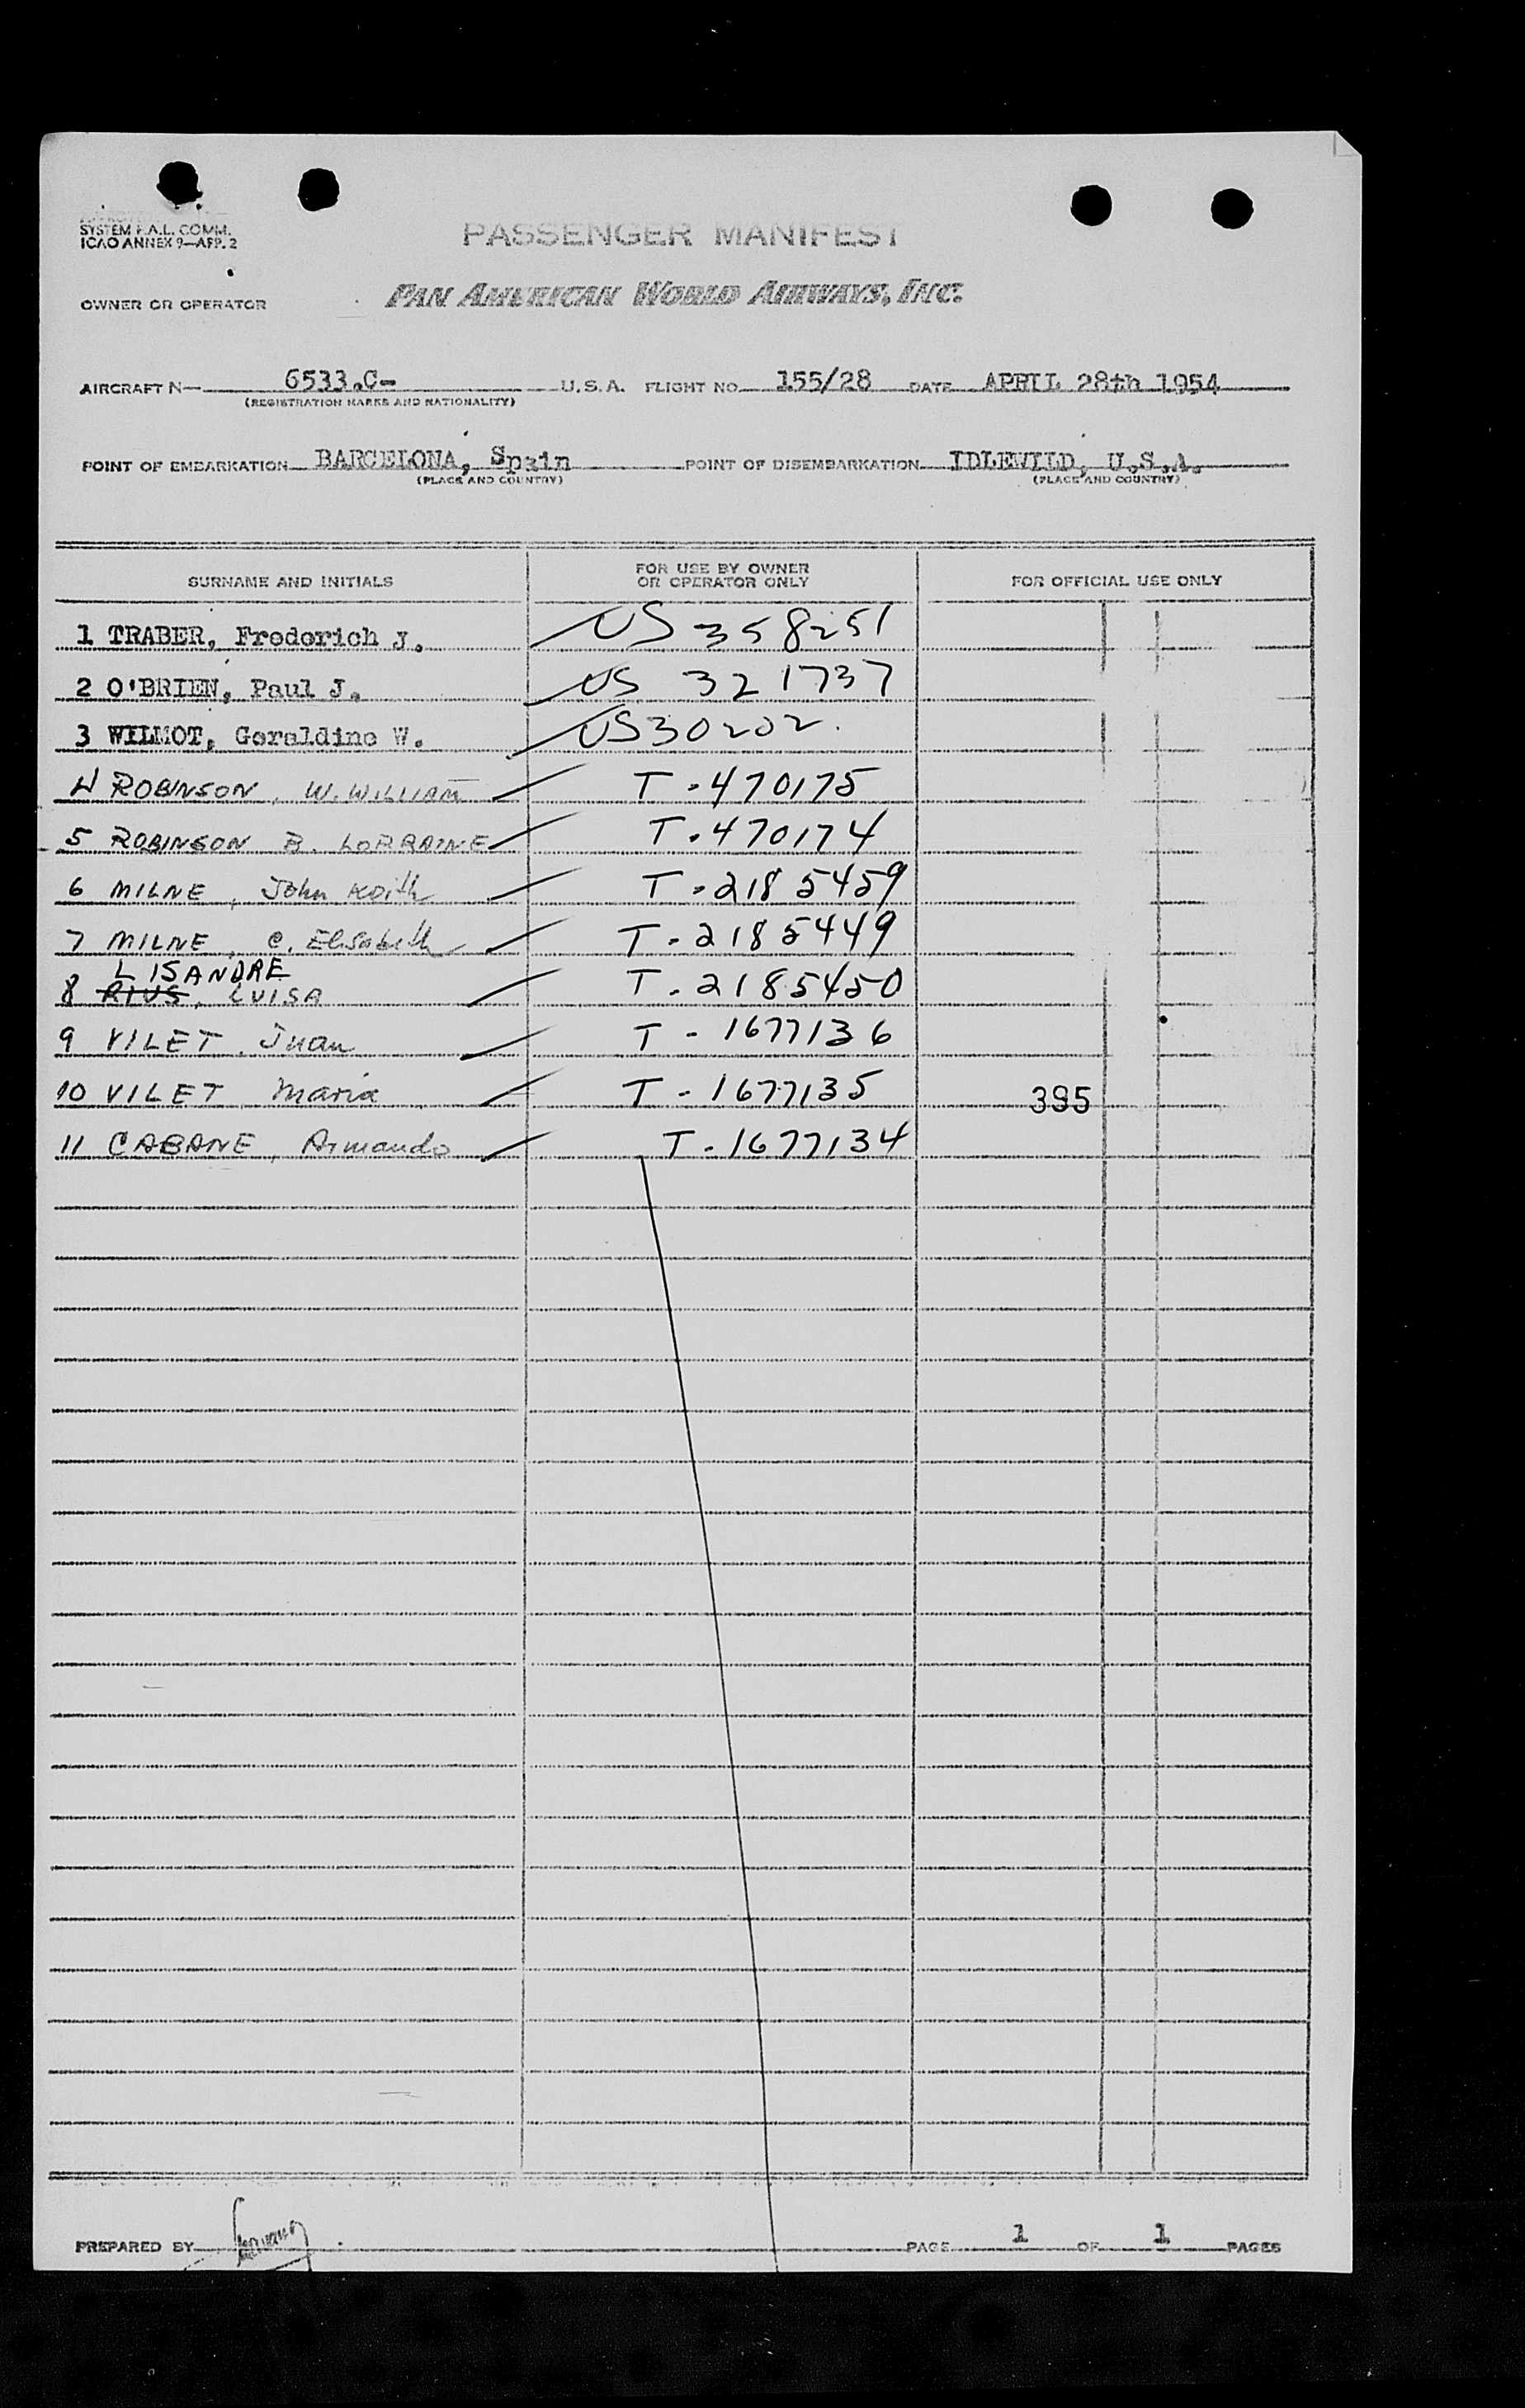 SYSTEM F.A.L. COMM.
ICAO ANNEX 9—APP. 2
PASSENGER MANIFEST
OWNER OR OPERATOR PAN AMERICAN WORLD AIRWAYS, INC.
AIRCRAFT N— 6533.C- U.S.A. FLIGHT NO. 155/28 DATE APRIL 28th 1954
(REGISTRATION MARKS AND NATIONALITY)
POINT OF EMBARKATION BARCELONA, Spain POINT OF DISEMBARKATION IDLEWILD, U.S.A.
(PLACE AND COUNTRY) (PLACE AND COUNTRY)
SURNAME AND INITIALS FOR USE BY OWNER OR OPERATOR ONLY FOR OFFICIAL USE ONLY
1 TRABER, Frederich J. US 358251
2 O'BRIEN, Paul J. US 321737
3 WILMOT, Geraldine W. US30202.
4 ROBINSON, W. WILLIAM T-470175
5 ROBINSON B. LORRAINE T.470174
6 MILNE, John Keith T-2185459
7 MILNE, C. Elisabeth T-2185449
LISANDRE
8 RIUS, LUISA T-2185450
9 VILET, Juan T-1677136
10 VILET, Maria T-1677135 395
11 CABANE, Armando T-1677134
PREPARED BY PAGE 1 OF 1 PAGES